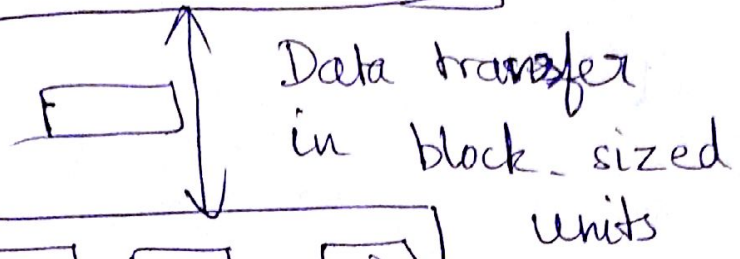 Data transfer
in block-sized
units